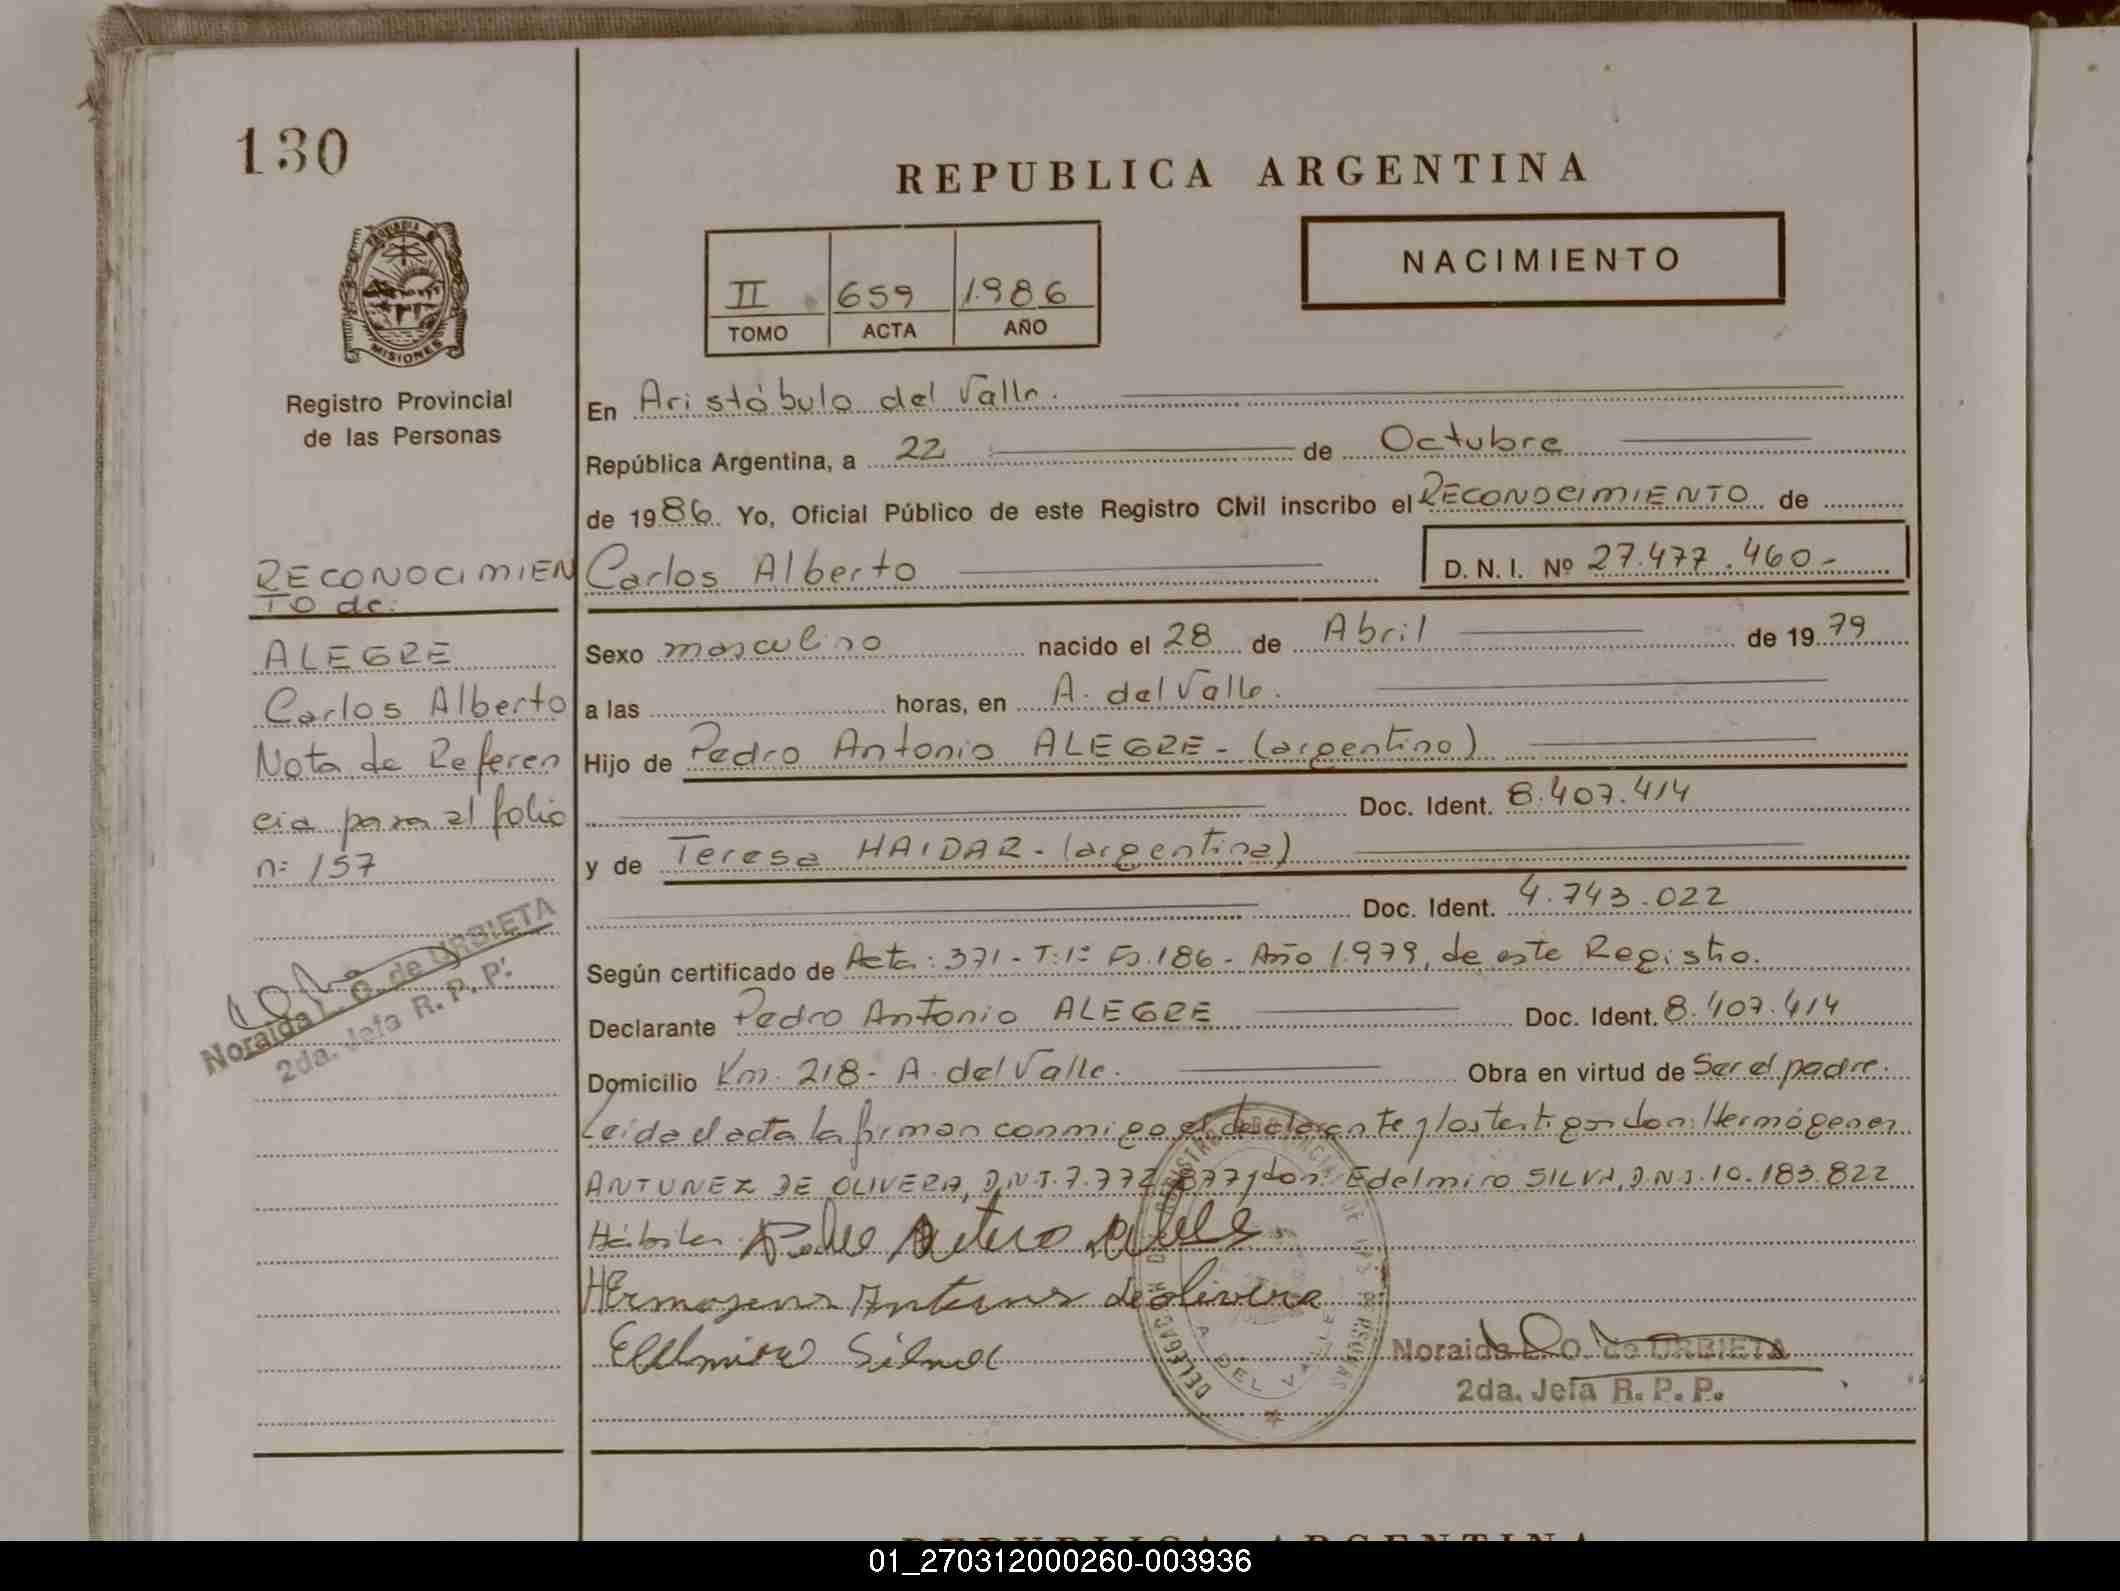 130
REPUBLICA ARGENTINA
II 659 1.986
TOMO ACTA AÑO
NACIMIENTO
MISIONES
Registro Provincial
de las Personas
En Aristóbulo del Valle.
República Argentina, a 22 de Octubre
de 1986. Yo, Oficial Público de este Registro Civil inscribo el RECONOCIMIENTO de
Carlos Alberto D. N. I. Nº 27.477.460-
Sexo masculino nacido el 28 de Abril de 1979
a las horas, en A. del Valle.
Hijo de Pedro Antonio ALEGRE - (argentino)
Doc. Ident. 8.407.414
y de Teresa HAIDAR - (argentina)
Doc. Ident. 4.743.022
Según certificado de Acta: 371 - T: 1º Fº 186 - Año 1.979, de este Registro.
Declarante Pedro Antonio ALEGRE Doc. Ident. 8.407.414
Domicilio Km. 218 - A. del Valle. Obra en virtud de Ser el padre.
Leida el acta la firman conmigo el declarante y los testigos don: Hermógenes
ANTUNEZ DE OLIVERA, D.N.I. 7.772.877 y don: Edelmiro SILVA, D.N.I. 10.183.822
Hábiles
Hermogenes Antunes de olivera
Edelmiro Silva
Noraida O. de URBIETA
2da. Jefa R. P. P.
A. DEL VALLE
RECONOCIMIEN
TO de:
ALEGRE
Carlos Alberto
Nota de Referen
cia para el folio
nº 157
Noraida O. de URBIETA
2da. Jefa R. P. P.
REPUBLICA ARGENTINA
01_270312000260-003936